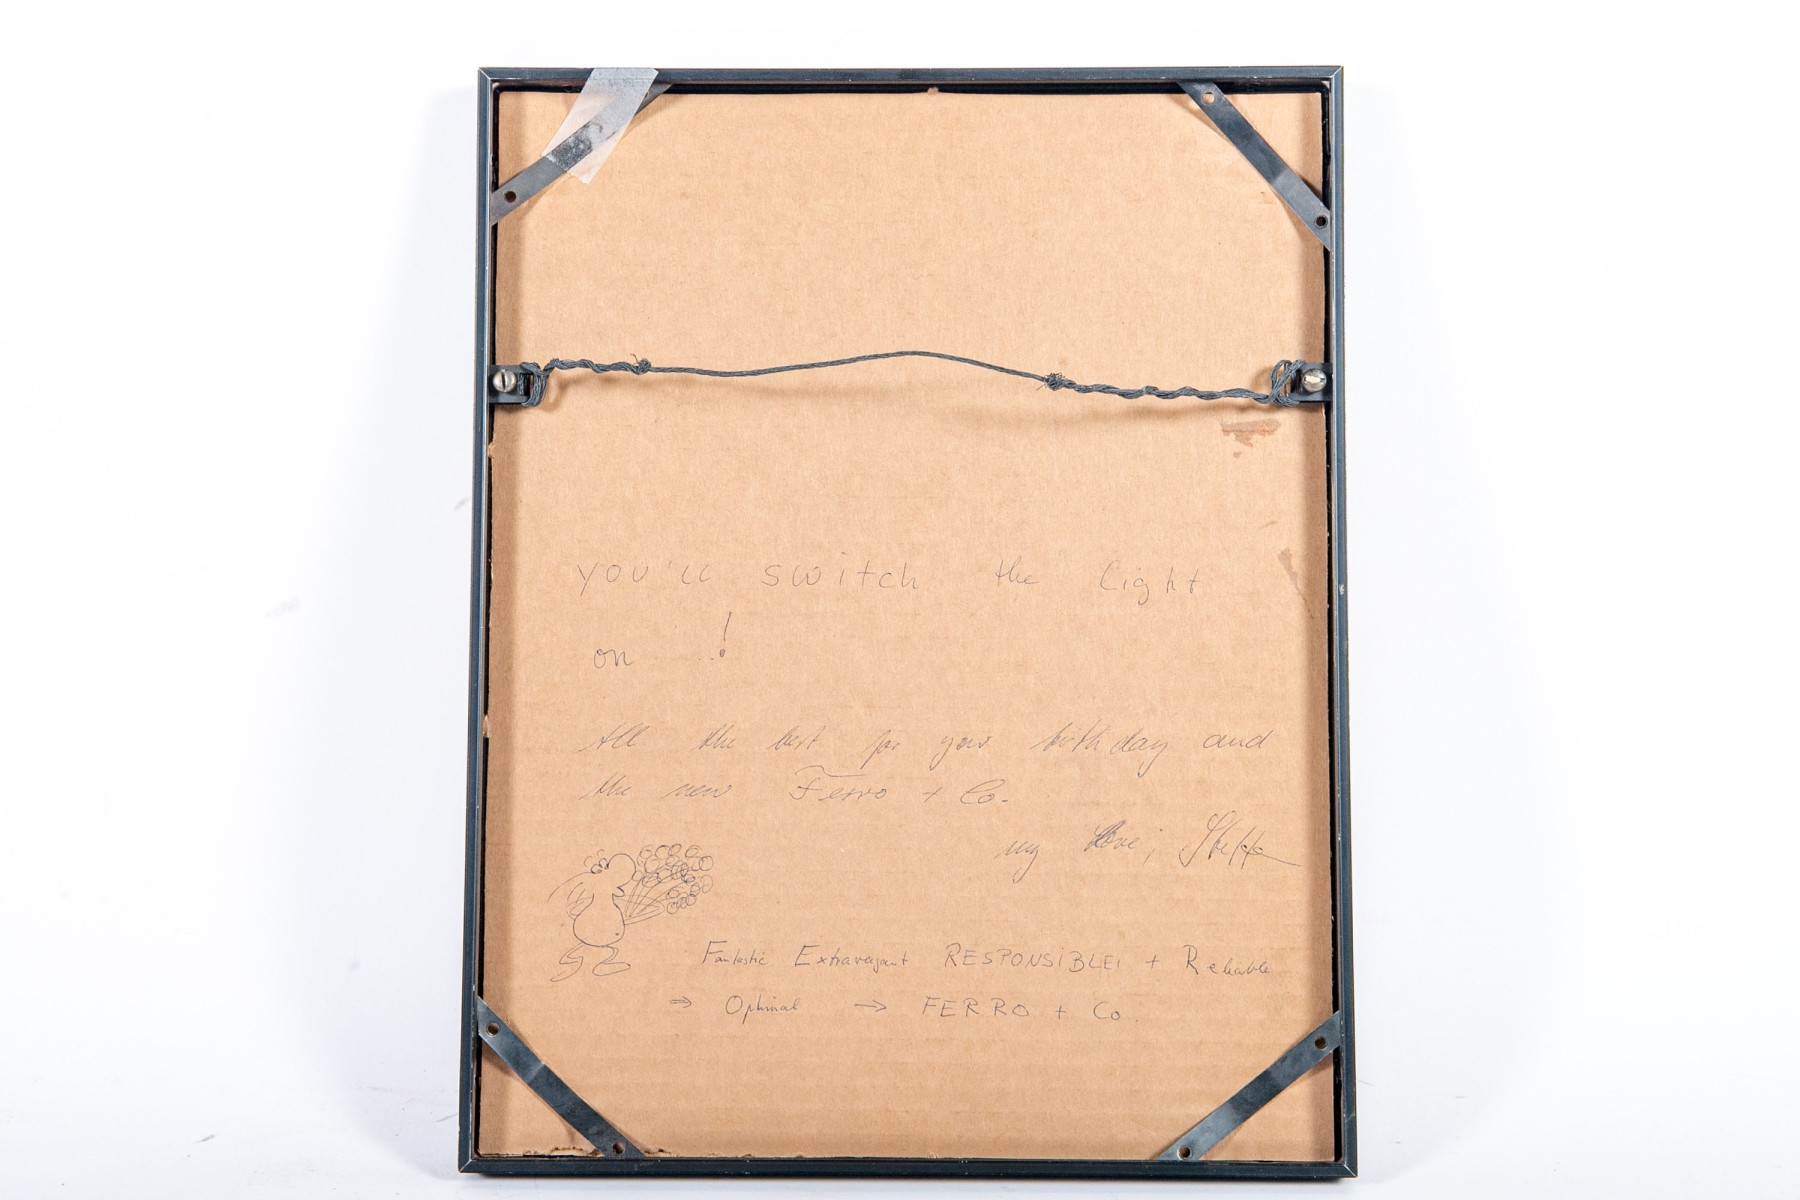 you'll switch the light
on ..!
All the best for your birthday and
the new Ferro + Co.
my love,
Fantastic Extravagant RESPONSIBLE! + Reliable
⇒ Optimal → FERRO + Co.